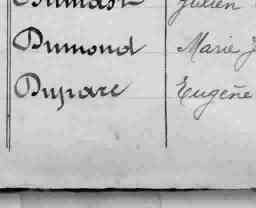 Dumont Julien
Dumond Marie J
Dupare Eugène